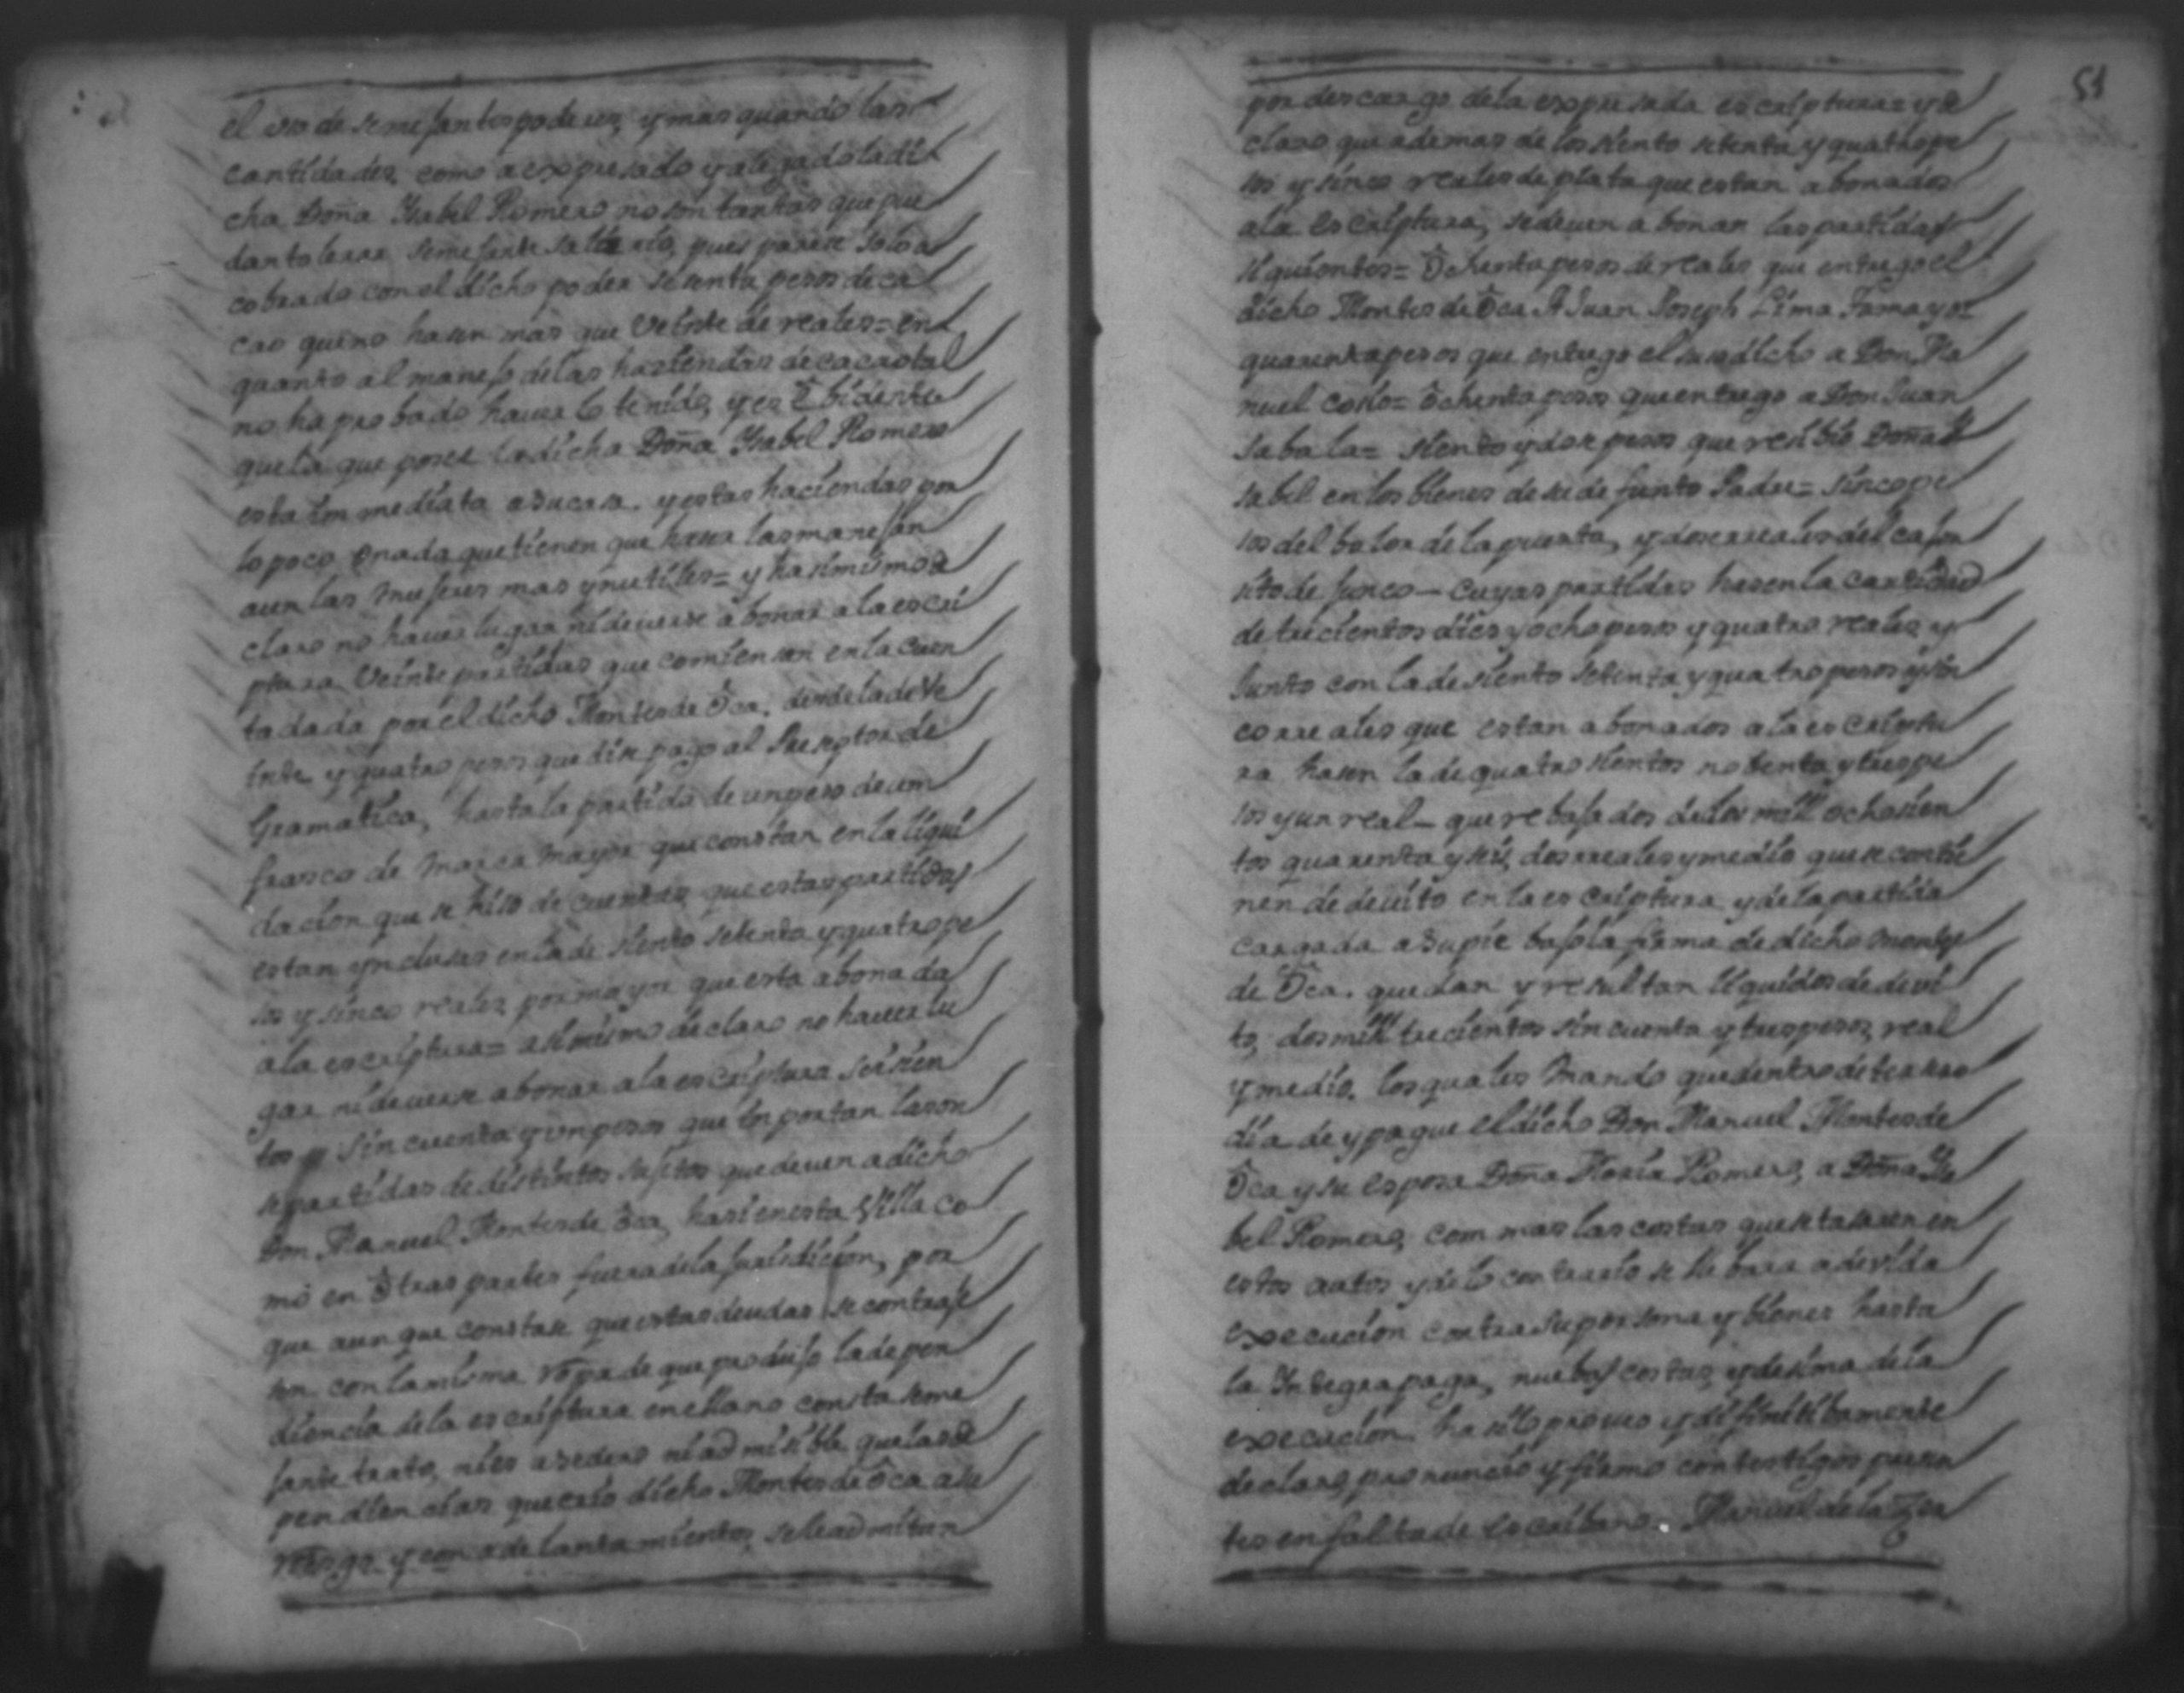 el uso de semejantes poderes, y mas quando las
cantidades, como a expresado y alegado la di
cha Doña Ysabel Romero no son tantas que pue
dan tolerar semejante salario, pues parese solo a
cobrado con el dicho poder sesenta pesos de ca
cao que no hasen mas que veinte de reales = en
quanto al manejo de las haziendas de cacaotal
no ha probado haverlo tenido, y es ebidente
que la que posee la dicha Doña Ysabel Romero
esta immediata a su casa. y estas haciendas por
lo poco o nada que tienen que haser las manejan
aun las mujeres mas ynutiles = y hasimismo de
claro no haver lugar ni deverse abonar a la escri
ptura veinte partidas que comiensan en la cuen
ta dada por el dicho Montes de Oca. desde la de ve
inte y quatro pesos que dise pago al Preseptor de
Gramatica, hasta la partida de un peso de un
frasco de marca mayor que constan en la liqui
dacion que se hiso de cuentas que estas partidas
estan ynclusas en la de siento setenta y quatro pe
sos y sinco reales por mayor que esta abonada
a la escriptura = asimismo declaro no haver lu
gar ni deverse abonar a la escriptura seisien
tos sincuenta y un pesos que importan las on
se partidas de distintos sujetos que deven a dicho
Don Manuel Montes de Oca, hasi en esta Villa co
mo en otras partes fuera de la jurisdicion, por
que aunque constase que estas deudas se contraje
sen con la misma ropa de que produjo la depen
diencia de la escriptura en ellano consta seme
jante trato, ni es asedero ni admisible que las de
pendiencias que crio dicho Montes de Oca a su
riesgo y con adelantamientos, se le admitan
por descargo de la expresada escriptura = y de
claro que ademas de los siento setenta y quatro pe
sos y sinco reales de plata que estan abonados
a la escriptura, se deven abonar las partidas
siguientes = ochenta pesos de reales que entrego el
dicho Montes de Oca A Juan Joseph Lima Tamayo =
quarenta pesos que entrego el susodicho a Don Ma
nuel Cosio = ochenta pesos que entrego a Don Juan
Sabala = siento y dose pesos que resibio Doña Y
sabel en los bienes de su difunto Padre = sinco pe
sos del balor de la puerta, y dose reales del cajon
sito de junco — cuyas partidas hasen la cantidad
de trecientos dies y ocho pesos y quatro reales, y
junto con la de siento setenta y quatro pesos y sin
co rreales que estan abonados a la escriptu
ra hasen la de quatro sientos nobenta y tres pe
sos y un real — que rebajados de los mill ochosien
tos quarenta y seis, dos rreales y medio que se contie
nen de devito en la escriptura y de la partida
cargada a su pie bajo la firma de dicho Montes
de Oca. quedan y resultan liquidos de devi
to, dos mill trecientos sincuenta y tres pesos, real
y medio. los quales mando que dentro de tersero
dia de y pague el dicho Don Manuel Montes de
Oca y su esposa Doña Maria Romero, a Doña Ysa
bel Romero, com mas las costas que se tasaren en
estos autos y de lo contrario se librara a devida
execucion contra su persona y bienes hasta
la Integra paga, nuebas costas, y desima de la
execucion. hasi lo proveo y difinitibamente
declaro, pronuncio y firmo con testigos presen
tes en falta de escribano. Manuel de la Zer
51